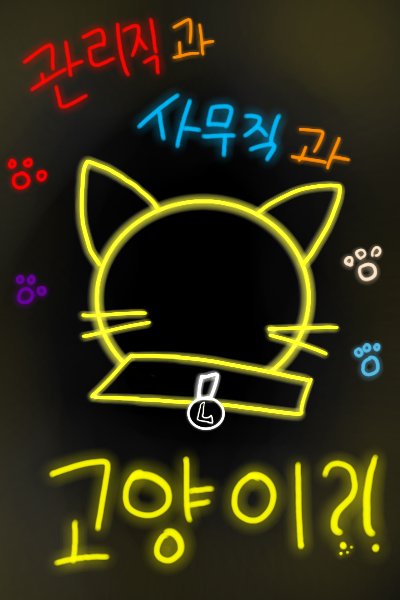 관리직과
사무직과
L
고양이?!